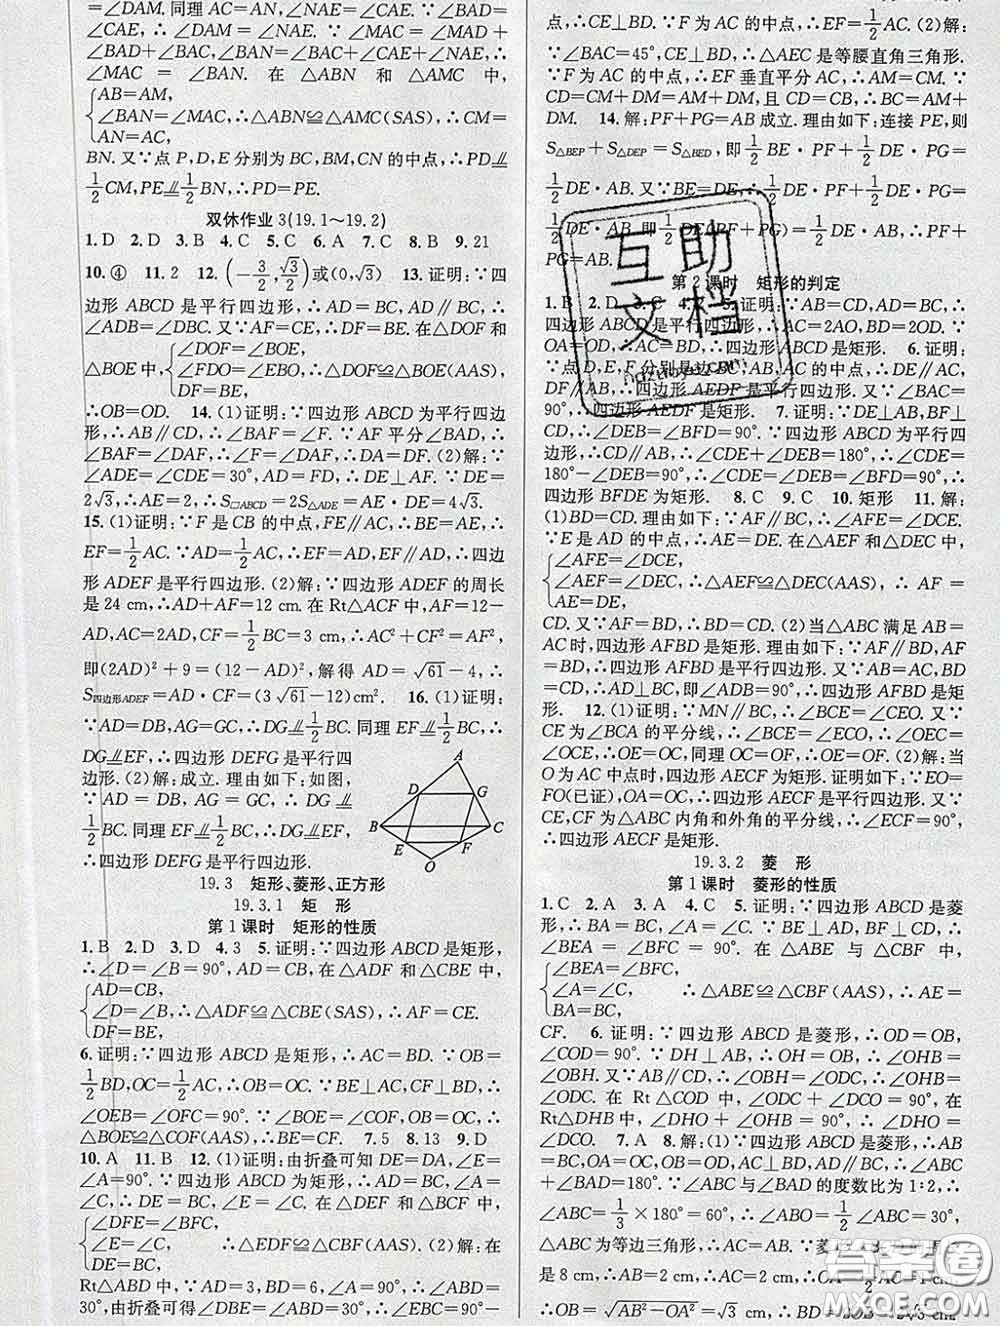 ∠DAM. 同理 AC=AN,∠CAE=∠NAE. ∵∠BAD=
∠CAE,∴∠DAM=∠NAE. ∵∠MAC=∠MAD+
∠BAD+∠BAC,∠BAN=∠BAC+∠CAE+∠NAE,∴
∠MAC=∠BAN. 在△ABN 和△AMC 中,
{AB=AM,
∠BAN=∠MAC,∴△ABN≌△AMC(SAS),∴CM=
AN=AC,
BN. 又∵点 P,D,E 分别为 BC,BM,CN 的中点,∴PD⫽
1/2CM,PE⫽1/2BN,∴PD=PE.
双休作业 3(19.1～19.2)
1. D 2. D 3. B 4. C 5. C 6. A 7. C 8. B 9. 21
10. ④ 11. 2 12. (-3/2,√3/2)或(0,√3) 13. 证明:∵四
边形 ABCD 是平行四边形,∴AD=BC,AD∥BC,∴
∠ADB=∠DBC. 又∵AF=CE,∴DF=BE. 在△DOF 和
△BOE 中,{∠DOF=∠BOE,
∠FDO=∠EBO,∴△DOF≌△BOE(AAS),
DF=BE,
∴OB=OD. 14. (1)证明:∵四边形 ABCD 为平行四边
形,∴AB∥CD,∴∠BAF=∠F. ∵AF 平分∠BAD,∴
∠BAF=∠DAF,∴∠F=∠DAF,∴DA=DF. (2)解:∵
∠ADE=∠CDE=30°,AD=FD,∴DE⊥AF. ∵DE=
2√3,∴AE=2,∴S□ABCD=2S△ADE=AE·DE=4√3.
15. (1)证明:∵F 是 CB 的中点,FE∥AC,∴BE=AE,∴
EF=1/2AC. ∵AD=1/2AC,∴AD=EF,AD∥EF,∴四边
形 ADEF 是平行四边形. (2)解:∵四边形 ADEF 的周长
是 24 cm,∴AD+AF=12 cm. 在 Rt△ACF 中,AF=12-
AD,AC=2AD,CF=1/2BC=3 cm,∴AC²+CF²=AF²,
即(2AD)²+9=(12-AD)²,解得 AD=√61-4,∴
S四边形ADEF=AD·CF=(3√61-12)cm². 16. (1)证明:
∵AD=DB,AG=GC,∴DG⫽1/2BC. 同理 EF⫽1/2BC,∴
DG⫽EF,∴四边形 DEFG 是平行四
边形. (2)解:成立. 理由如下:如图,
∵AD=DB,AG=GC,∴DG⫽
1/2BC. 同理 EF⫽1/2BC,∴DG⫽EF,
∴四边形 DEFG 是平行四边形.
A
D
G
B
C
E
F
O
19.3 矩形、菱形、正方形
19.3.1 矩 形
第 1 课时 矩形的性质
1. B 2. D 3. D 4. 3 5. 证明:∵四边形 ABCD 是矩形,
∴∠D=∠B=90°,AD=CB,在△ADF 和△CBE 中,
{AD=CB,
∠D=∠B,∴△ADF≌△CBE(SAS),∴AF=CE.
DF=BE,
6. 证明:∵四边形 ABCD 是矩形,∴AC=BD. ∵OB=
1/2BD,OC=1/2AC,∴OB=OC. ∵BE⊥AC,CF⊥BD,∴
∠OEB=∠OFC=90°. ∵∠BOE=∠COF,OB=OC,∴
△BOE≌△COF(AAS),∴BE=CF. 7. 5 8. 13 9. D
10. A 11. B 12. (1)证明:由折叠可知 DE=DA,∠E=
∠A=90°. ∵四边形 ABCD 为矩形,∴AD=BC,∠A=
∠C,∴DE=BC,∠E=∠C. 在△DEF 和△BCF 中,
{∠DFE=∠BFC,
∠E=∠C, ∴△EDF≌△CBF(AAS). (2)解:在
DE=BC,
Rt△ABD 中,∵AD=3,BD=6,∴∠ABD=30°,∴
∠BDE=60°,由折叠可得∠DBE=∠ABE=30°,∴∠EBC=90°-
点,∴CE⊥DB. ∵F 为 AC 的中点,∴EF=1/2AC. (2)解:
∵∠BAC=45°,CE⊥BD,∴△AEC 是等腰直角三角形.
∵F 为 AC 的中点,∴EF 垂直平分 AC,∴AM=CM. ∵
CD=CM+DM=AM+DM,CD=BC,∴BC=AM+
DM. 14. 解:PF+PG=AB 成立. 理由如下:连接 PE,则
S△BEP+S△DEP=S△BED,即1/2BE·PF+1/2DE·PG=
1/2DE·AB. 又∵BE=DE,∴1/2DE·PF+1/2DE·PG=
1/2DE·AB,即1/2DE(PF+PG)=1/2DE·AB,∴PF+PG=
AB.
第 2 课时 矩形的判定
1. B 2. D 3. C 5. 证明:∵AB=CD,AD=BC,∴
四边形 ABCD 是平行四边形,∴AC=2AO,BD=2OD. ∵
OA=OD,∴AC=BD,∴四边形 ABCD 是矩形. 6. 证明:
∵点 D,E,F 分别是边 BC,AB,AC 的中点,∴DE∥AC,
DF∥AB,∴四边形 AEDF 是平行四边形. 又∵∠BAC=
90°,∴四边形 AEDF 是矩形. 7. 证明:∵DE⊥AB,BF⊥
CD,∴∠DEB=∠BFD=90°. ∵四边形 ABCD 为平行四
边形,∴CD∥AB,∴∠CDE+∠DEB=180°,∴∠CDE=
180°-∠DEB=90°,∴∠CDE=∠DEB=∠BFD=90°,∴
四边形 BFDE 为矩形. 8. C 9. C 10. 矩形 11. 解:
(1)BD=CD. 理由如下:∵AF∥BC,∴∠AFE=∠DCE.
∵E 是 AD 的中点,∴AE=DE. 在△AEF 和△DEC 中,
{∠AFE=∠DCE,
∠AEF=∠DEC,∴△AEF≌△DEC(AAS),∴AF=
AE=DE,
CD. 又∵AF=BD,∴BD=CD. (2)当△ABC 满足 AB=
AC 时,四边形 AFBD 是矩形. 理由如下:∵AF∥BD,
AF=BD,∴四边形 AFBD 是平行四边形. ∵AB=AC,BD
=CD,∴AD⊥BC,即∠ADB=90°,∴四边形 AFBD 是矩
形. 12. (1)证明:∵MN∥BC,∴∠BCE=∠CEO. 又∵
CE 为∠BCA 的平分线,∴∠BCE=∠ECO,∴∠OEC=
∠OCE,∴OE=OC,同理 OC=OF,∴OE=OF. (2)解:当
O 为 AC 中点时,四边形 AECF 为矩形. 证明如下:∵EO=
FO(已证),OA=OC,∴四边形 AECF 是平行四边形. 又∵
CE,CF 为△ABC 内角和外角的平分线,∴∠ECF=90°,
∴四边形 AECF 是矩形.
19.3.2 菱 形
第 1 课时 菱形的性质
1. C 2. A 3. A 4. C 5. 证明:∵四边形 ABCD 是菱
形,∴BA=BC,∠A=∠C. ∵BE⊥AD,BF⊥CD,∴
∠BEA=∠BFC=90°. 在△ABE 与△CBF 中,
{∠BEA=∠BFC,
∠A=∠C, ∴△ABE≌△CBF(AAS),∴AE=
BA=BC,
CF. 6. 证明:∵四边形 ABCD 是菱形,∴OD=OB,
∠COD=90°. ∵DH⊥AB,∴OH=OB,∴∠OHB=
∠OBH. 又∵AB∥CD,∴∠OBH=∠ODC,∴∠OHB=
∠ODC. 在 Rt△COD 中,∠ODC+∠DCO=90°,在
Rt△DHB 中,∠DHO+∠OHB=90°,∴∠DHO=
∠DCO. 7. A 8. 解:(1)∵四边形 ABCD 是菱形,∴AB
=BC,OA=OC,OB=OD,AC⊥BD,AD∥BC,∴∠ABC
+∠BAD=180°. ∵∠ABC 与∠BAD 的度数比为 1:2,∴
∠ABC=1/3×180°=60°,∴∠ABO=1/2∠ABC=30°,
△ABC 为等边三角形,∴AC=AB. ∵菱形 ABCD 的周长
是 8 cm,∴AB=2 cm,∴AC=2 cm,∴OA=1/2AC=1 cm,
∴OB=√AB²-OA²=√3 cm,∴BD=2OB=2√3 cm.
互助
文档
答案圈
MXQE.COM